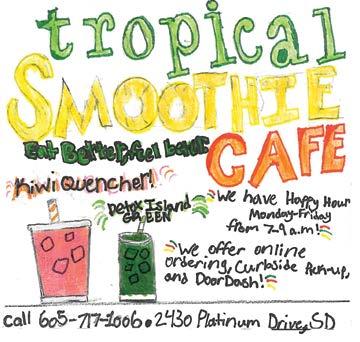 tropical
SMOOTHIE
CAFE
Eat Better, feel better
Kiwi Quencher!
Detox Island
GREEN
We have Happy Hour
Monday-Friday
from 7-9 a.m!
We offer online
ordering, Curbside Pick-up,
and DoorDash!
call 605-717-1006 • 2430 Platinum Drive, SD